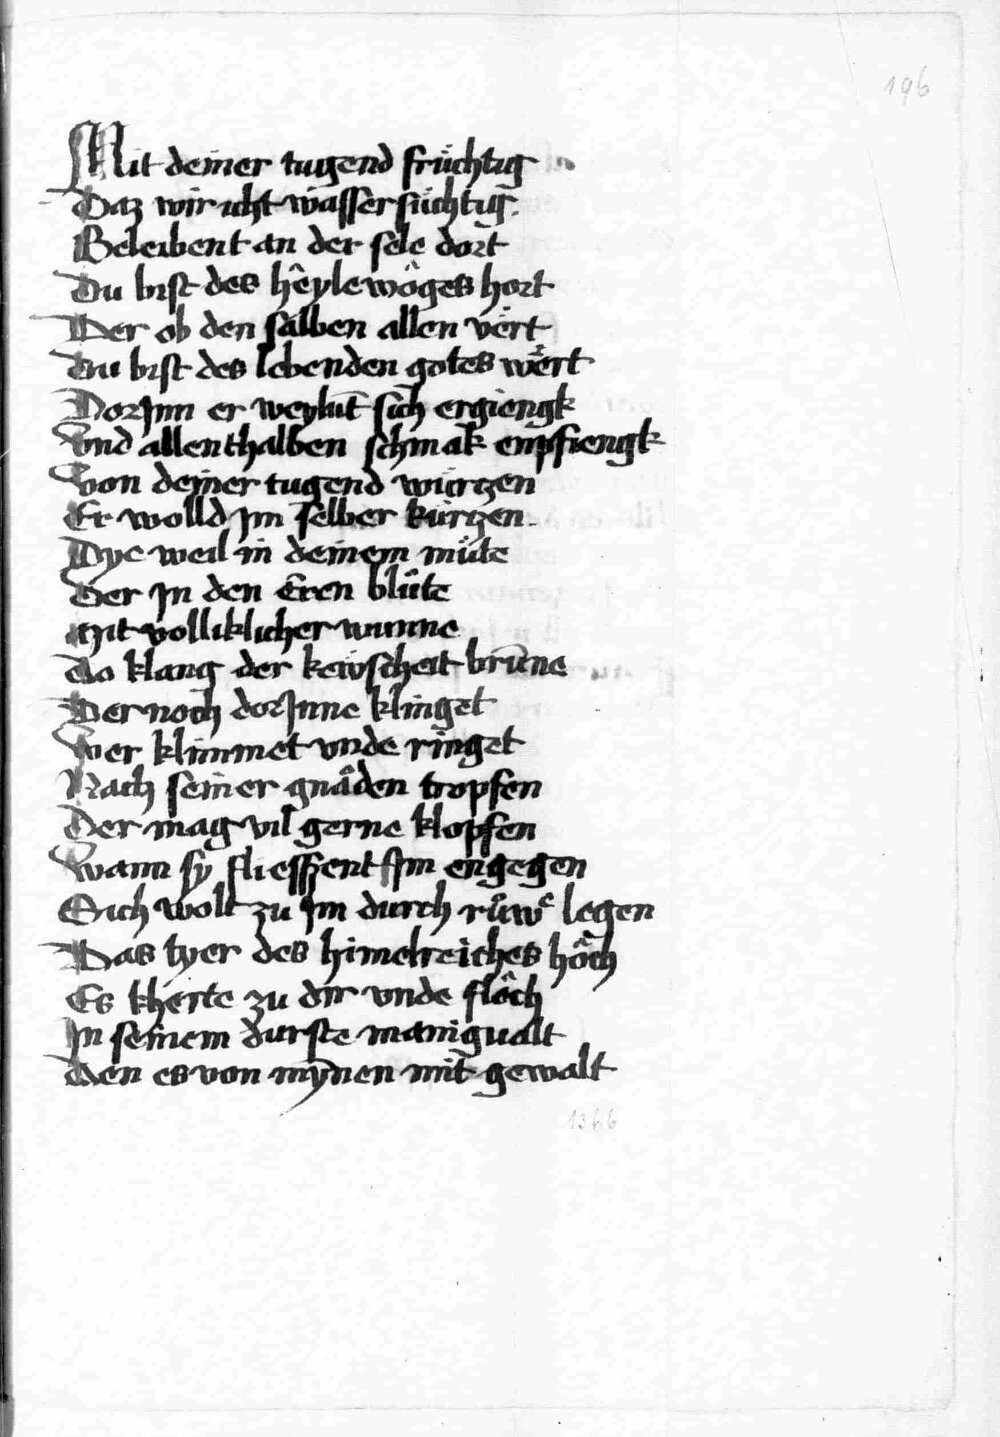 196
Mit deiner tugend früchtig
Daz wir icht wassersüchtig.
Beleibent an der sele dort
Du bist des hêylewôges hort
Der ob den salben allen vert
Du bist des lebenden gotes wert
Dorjnn er weylūt sich ergiengk
Vnd allenthalben schmak enpfiengk
Von deiner tugend würtzen
Er wolld jm selber kürtzen.
Dye weil in deinem müte
Der jn den Eren blüte
mit volliklicher wunne
Do klang der kewscheit brūne
Der noch dorjnne klinget
Wer klimmet vnde ringet
Nach seiner gnâden tropfen
Der mag vil gerne klopfen
Wann sy fliesszent jm engegen
Sich wolt zu jm durch růwe legen
Das tyer des himelreiches hôch
Es kherte zu dir vnde flôch
In seinem durste manigualt
Den es von mȳnen mit gewalt
1366